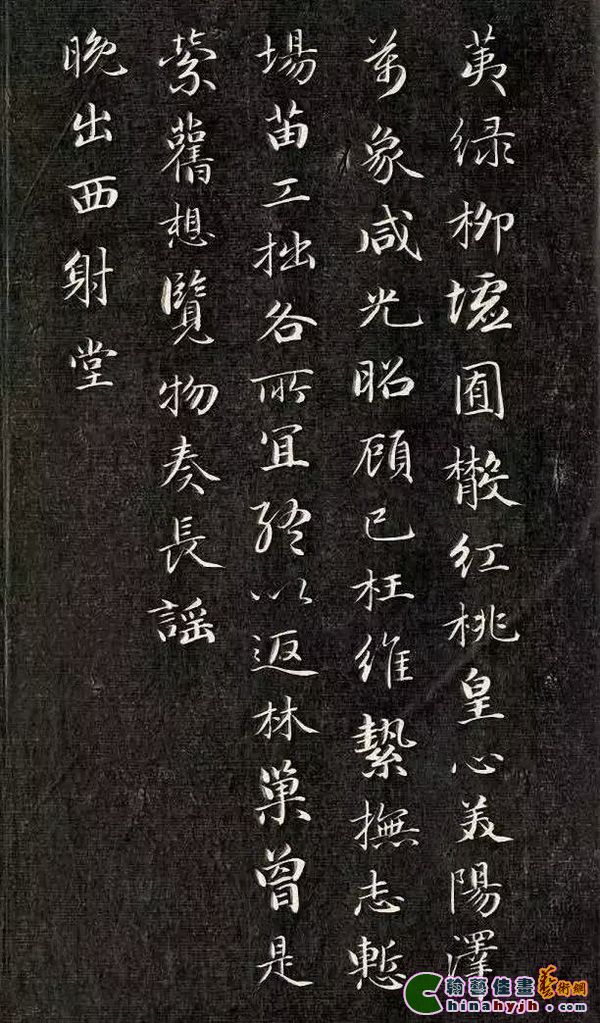 荑緑柳墟囿散紅桃皇心美陽澤
萬象咸光昭顧已枉維縶撫志慙
場苗工拙各所宜終以返林巢曾是
縈舊想覽物奏長謡
晚出西射堂
翰藝佳畫藝術網
Chinahyjh.com